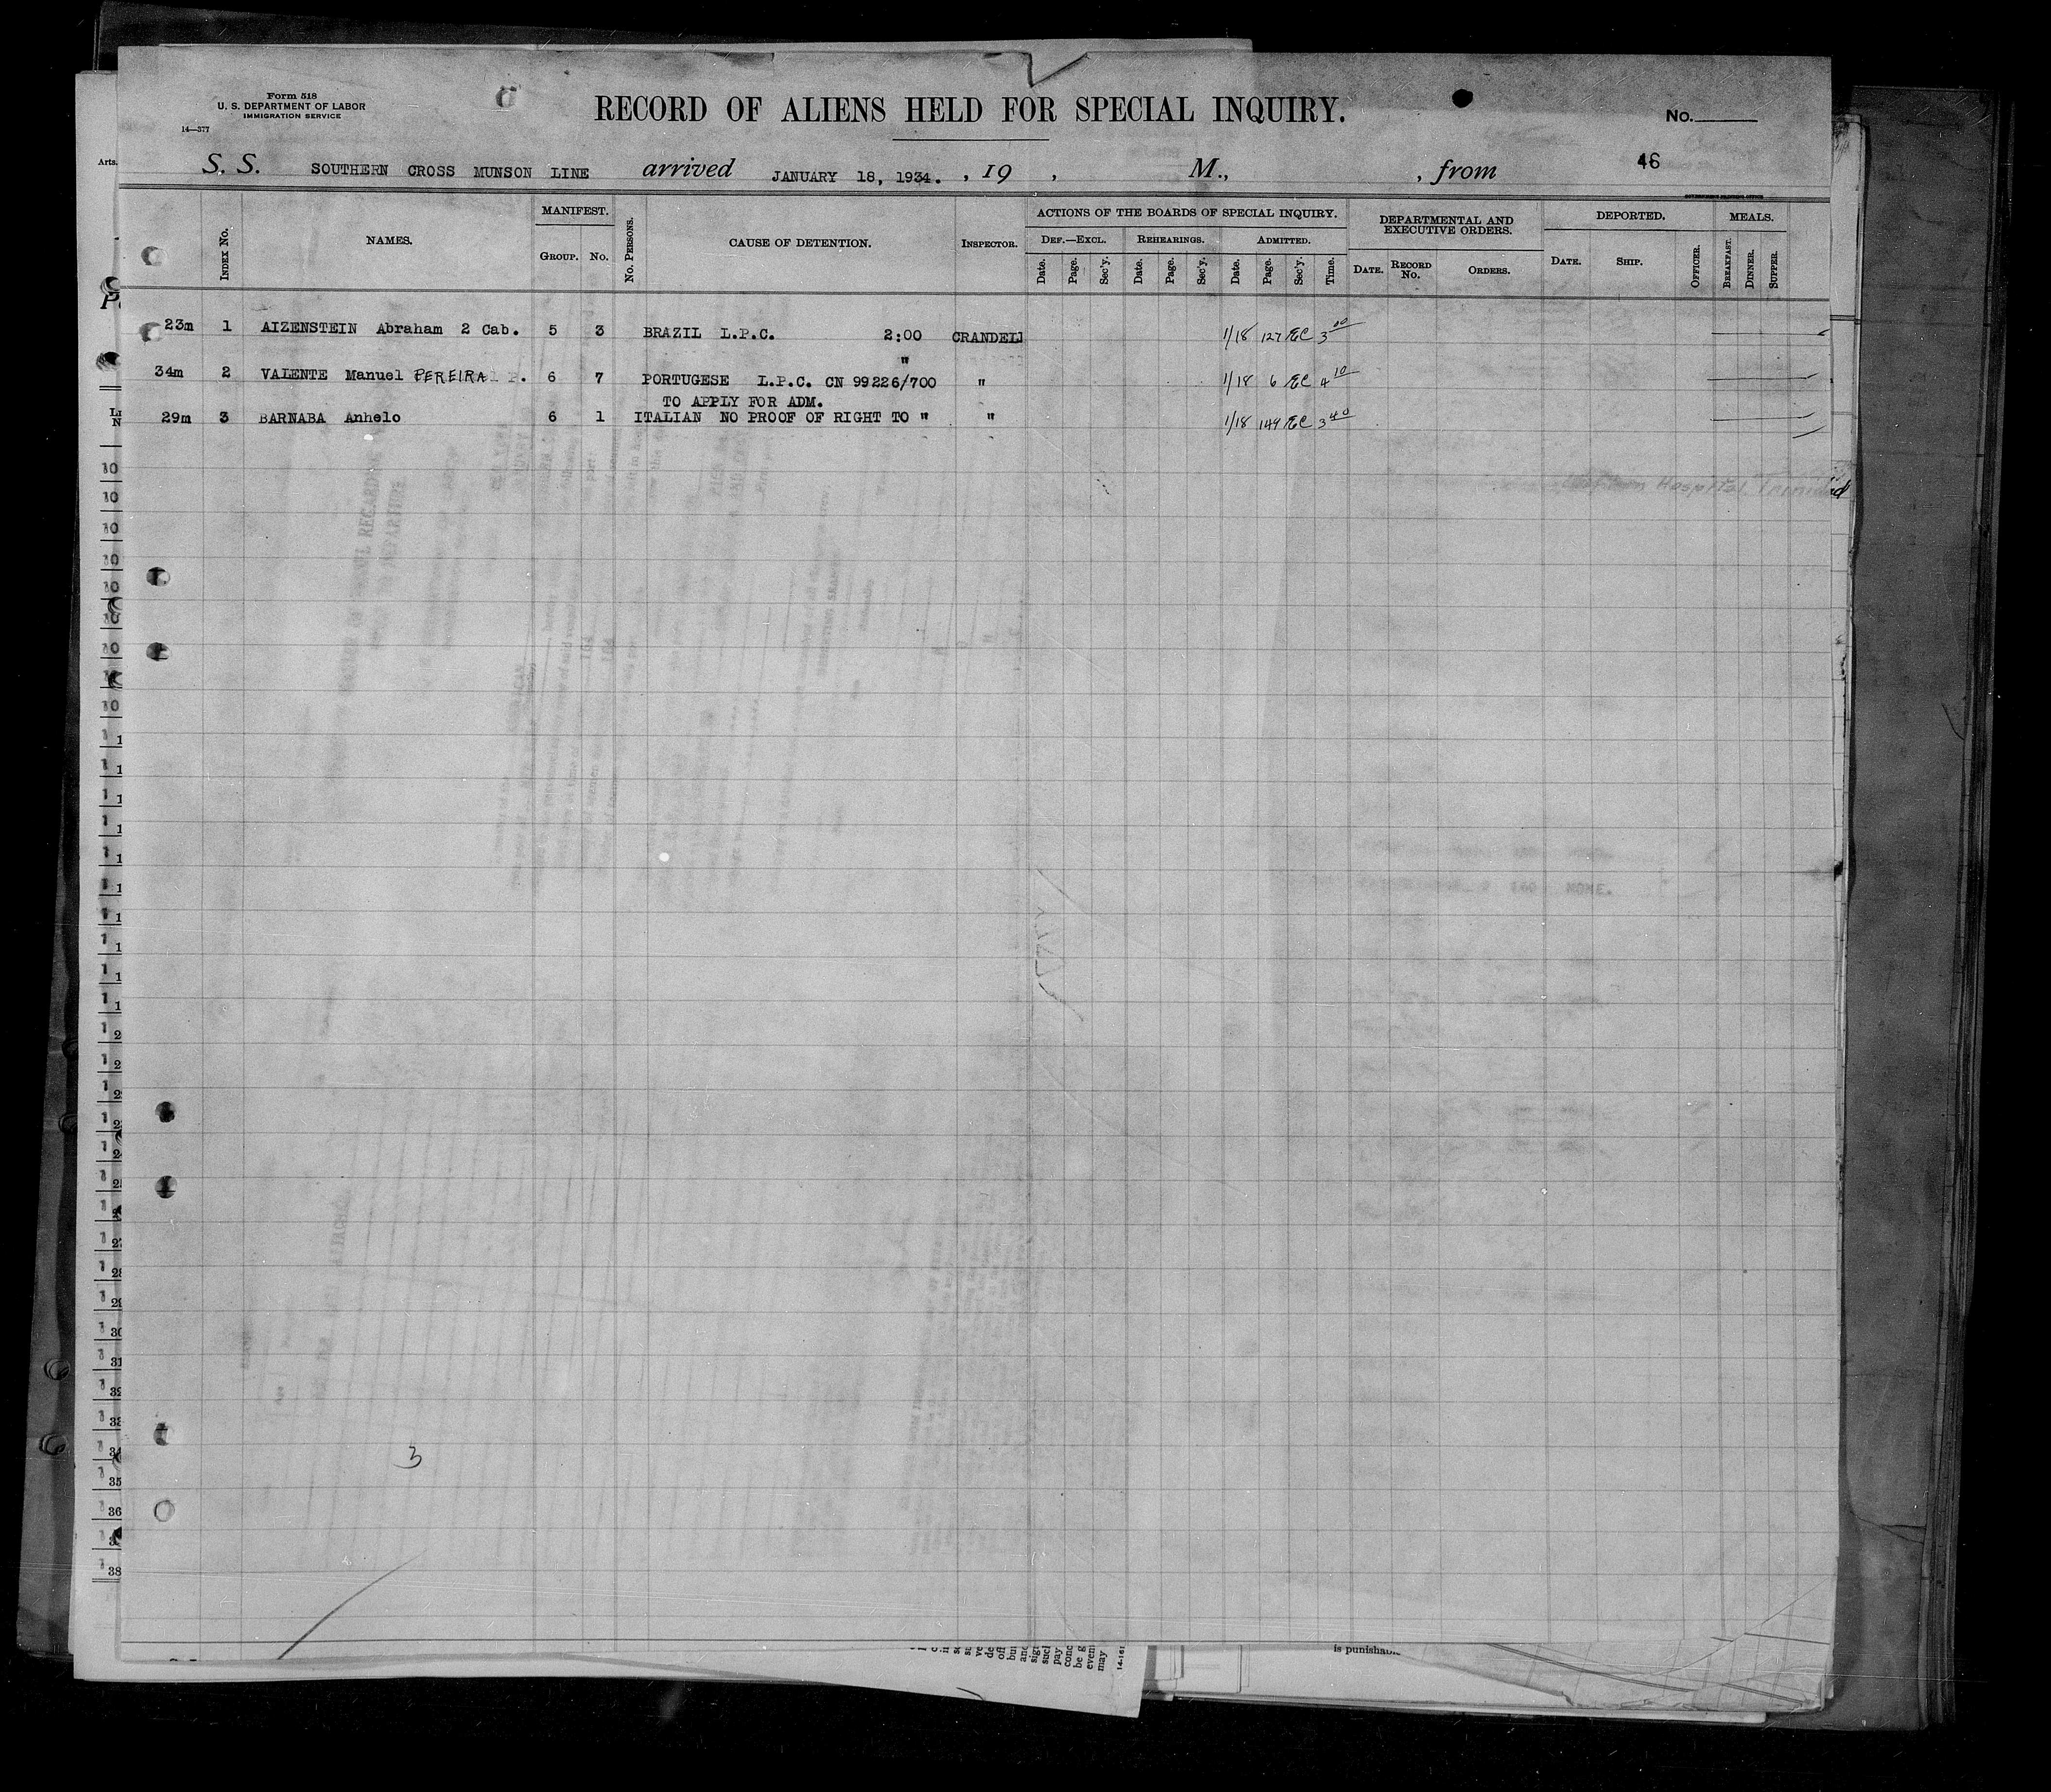 Form 518
U. S. DEPARTMENT OF LABOR
IMMIGRATION SERVICE
14—377
RECORD OF ALIENS HELD FOR SPECIAL INQUIRY.
No.
46
Arts.
S. S. SOUTHERN CROSS MUNSON LINE arrived JANUARY 18, 1934. , 19 , M., , from
INDEX No. NAMES. MANIFEST. GROUP. No. No. PERSONS. CAUSE OF DETENTION. INSPECTOR. ACTIONS OF THE BOARDS OF SPECIAL INQUIRY. DEPARTMENTAL AND EXECUTIVE ORDERS. DEPORTED. MEALS.
DEF.—EXCL. REHEARINGS. ADMITTED.
Date. Page. Sec'y. Date. Page. Sec'y. Date. Page. Sec'y. Time. DATE. RECORD No. ORDERS. DATE. SHIP. OFFICER. BREAKFAST. DINNER. SUPPER.
23m 1 AIZENSTEIN Abraham 2 Cab. 5 3 BRAZIL L.P.C. 2:00 CRANDELL 1/18 127 EC 3 00
"
34m 2 VALENTE Manuel PEREIRA 6 7 PORTUGESE L.P.C. CN 99226/700 " 1/18 6 EC 4 10
TO APPLY FOR ADM.
29m 3 BARNABA Anhelo 6 1 ITALIAN NO PROOF OF RIGHT TO " " 1/18 149 EC 3 40
Hospital Trinidad
NONE.
3
is punishable